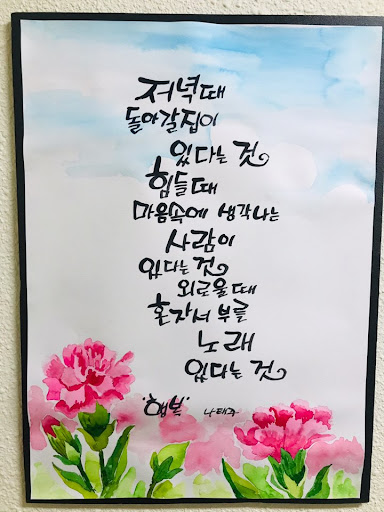 저녁때
돌아갈집이
있다는 것
힘들때
마음속에 생각나는
사람이
있다는 것
외로울때
혼자서 부를
노래
있다는 것
'행복' 나태주